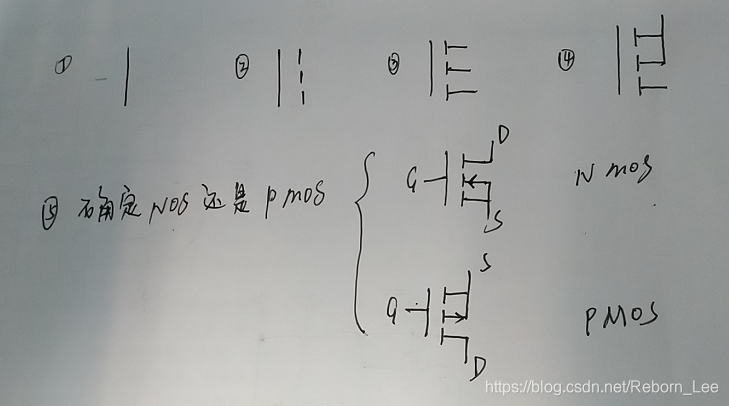 ① ② ③ ④
D
G
N mos
S
⑤ 确定 NOS 还是 pmos
S
G
PMOS
D
https://blog.csdn.net/Reborn_Lee